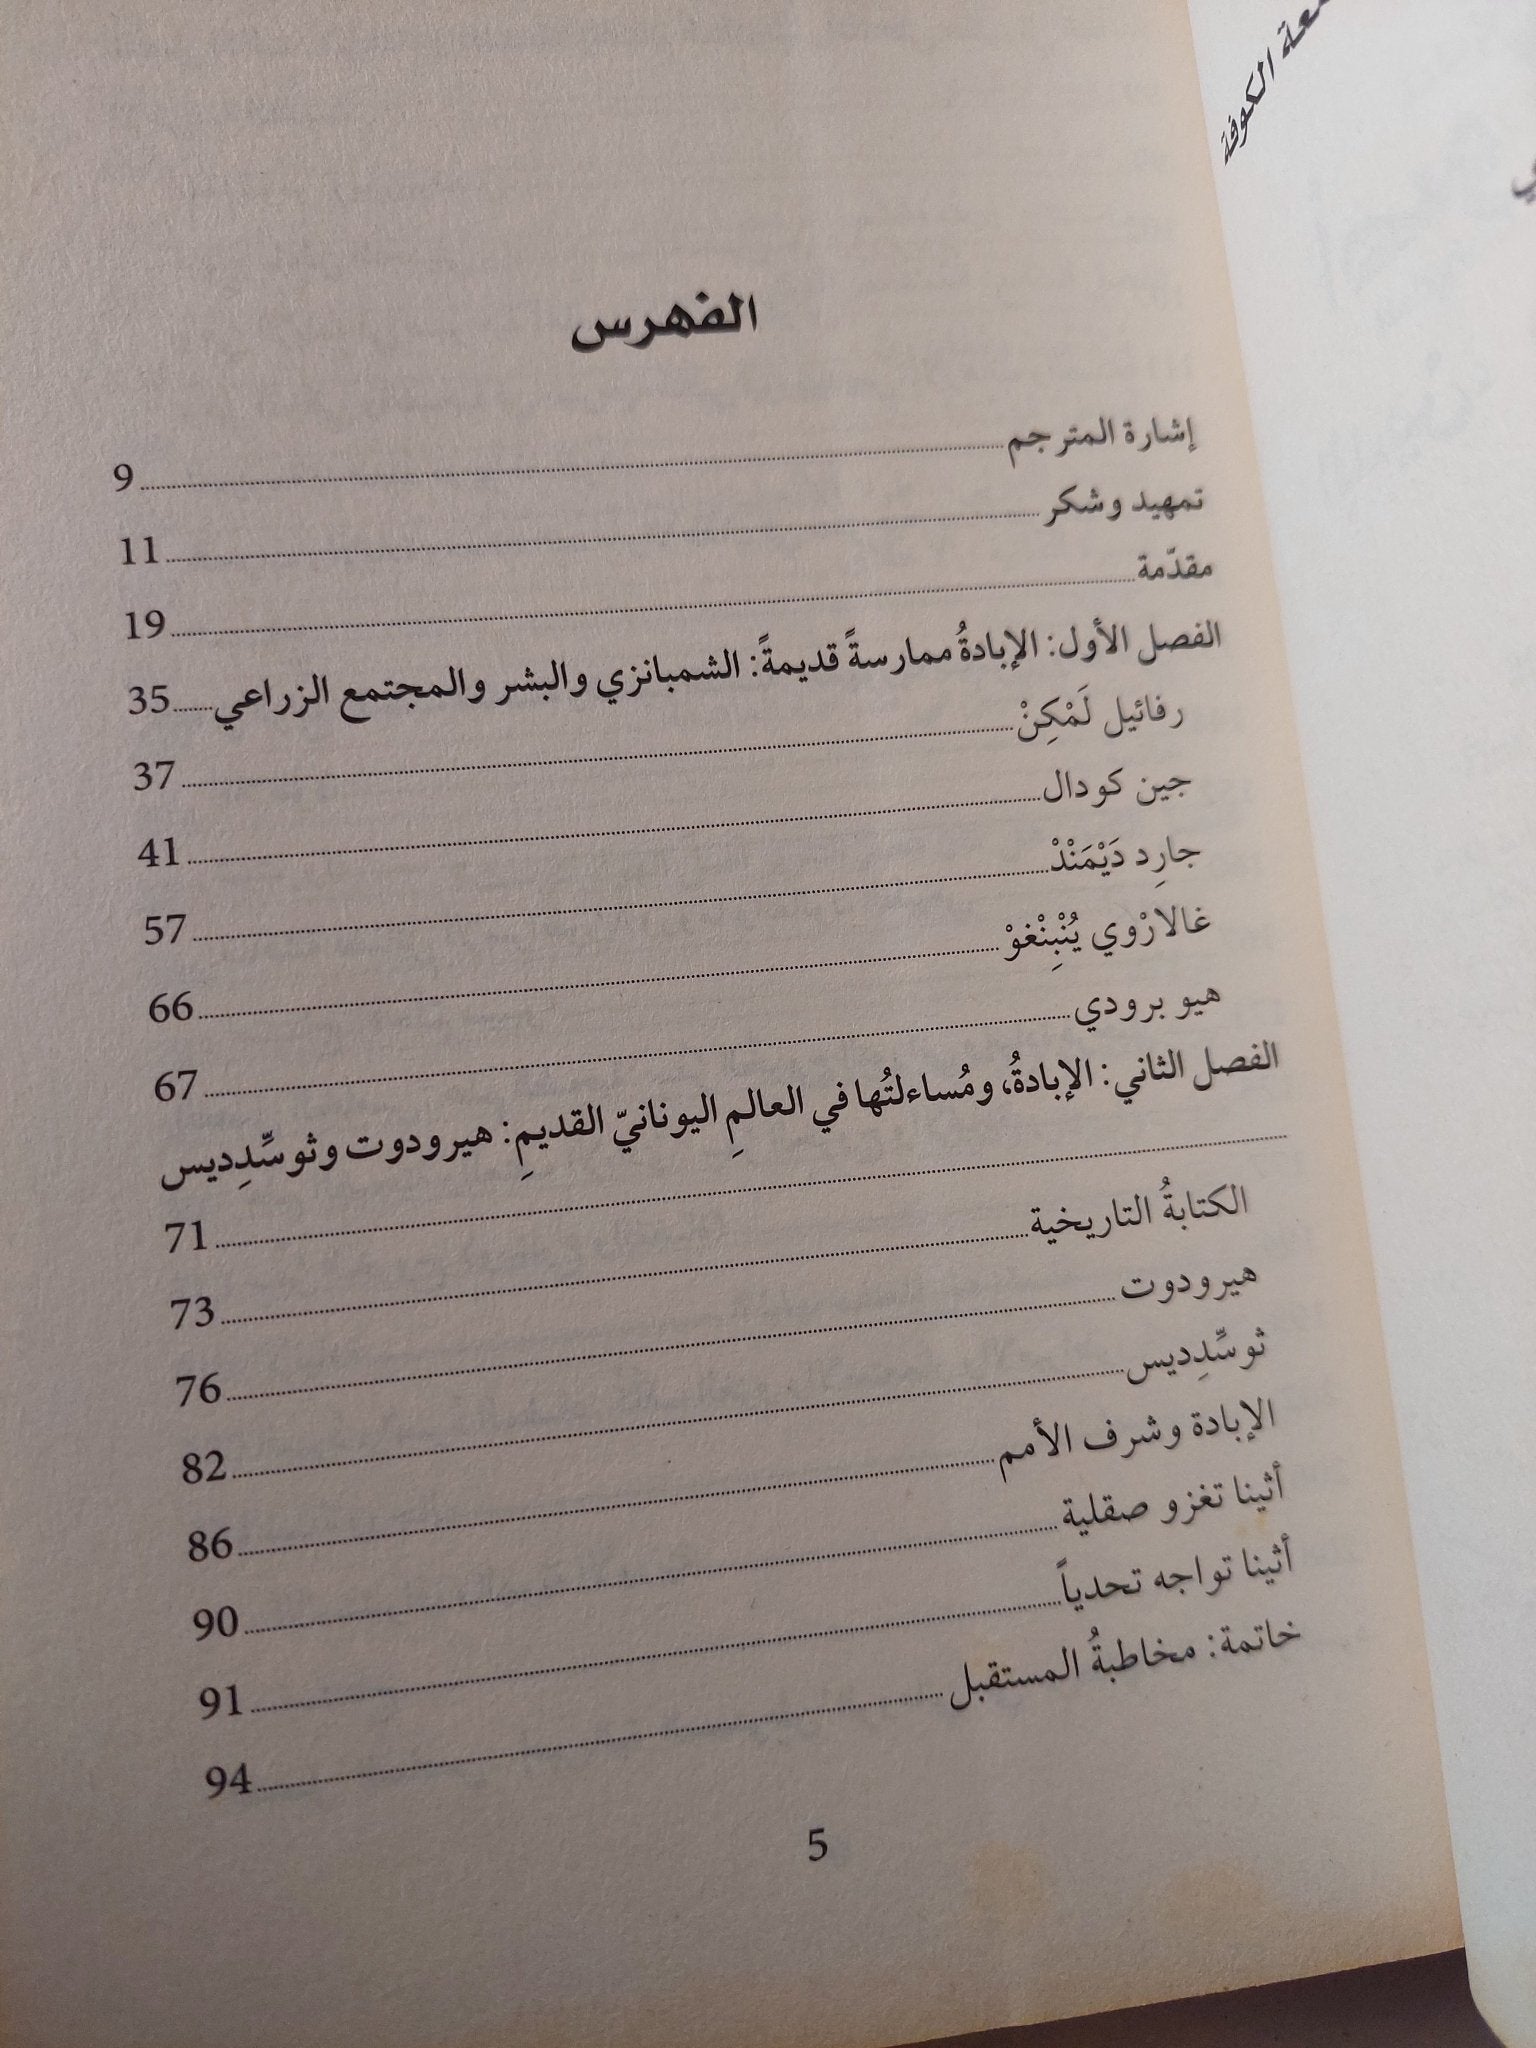 الفهرس
إشارة المترجم 9
تمهيد وشكر 11
مقدّمة 19
الفصل الأول: الإبادةُ ممارسةً قديمةً: الشمبانزي والبشر والمجتمع الزراعي 35
رفائيل لَمْكِنْ 37
جين كودال 41
جارِد دَيْمَنْدْ 57
غالارْوي يُنْبِنْغوْ 66
هيو برودي 67
الفصل الثاني: الإبادةُ، ومُساءلتُها في العالمِ اليونانيّ القديمِ: هيرودوت وثوسِّدِديس
71
الكتابةُ التاريخية 73
هيرودوت 76
ثوسِّدِديس 82
الإبادة وشرف الأمم 86
أثينا تغزو صقلية 90
أثينا تواجه تحدياً 91
خاتمة: مخاطبةُ المستقبل 94
5
الكوفة